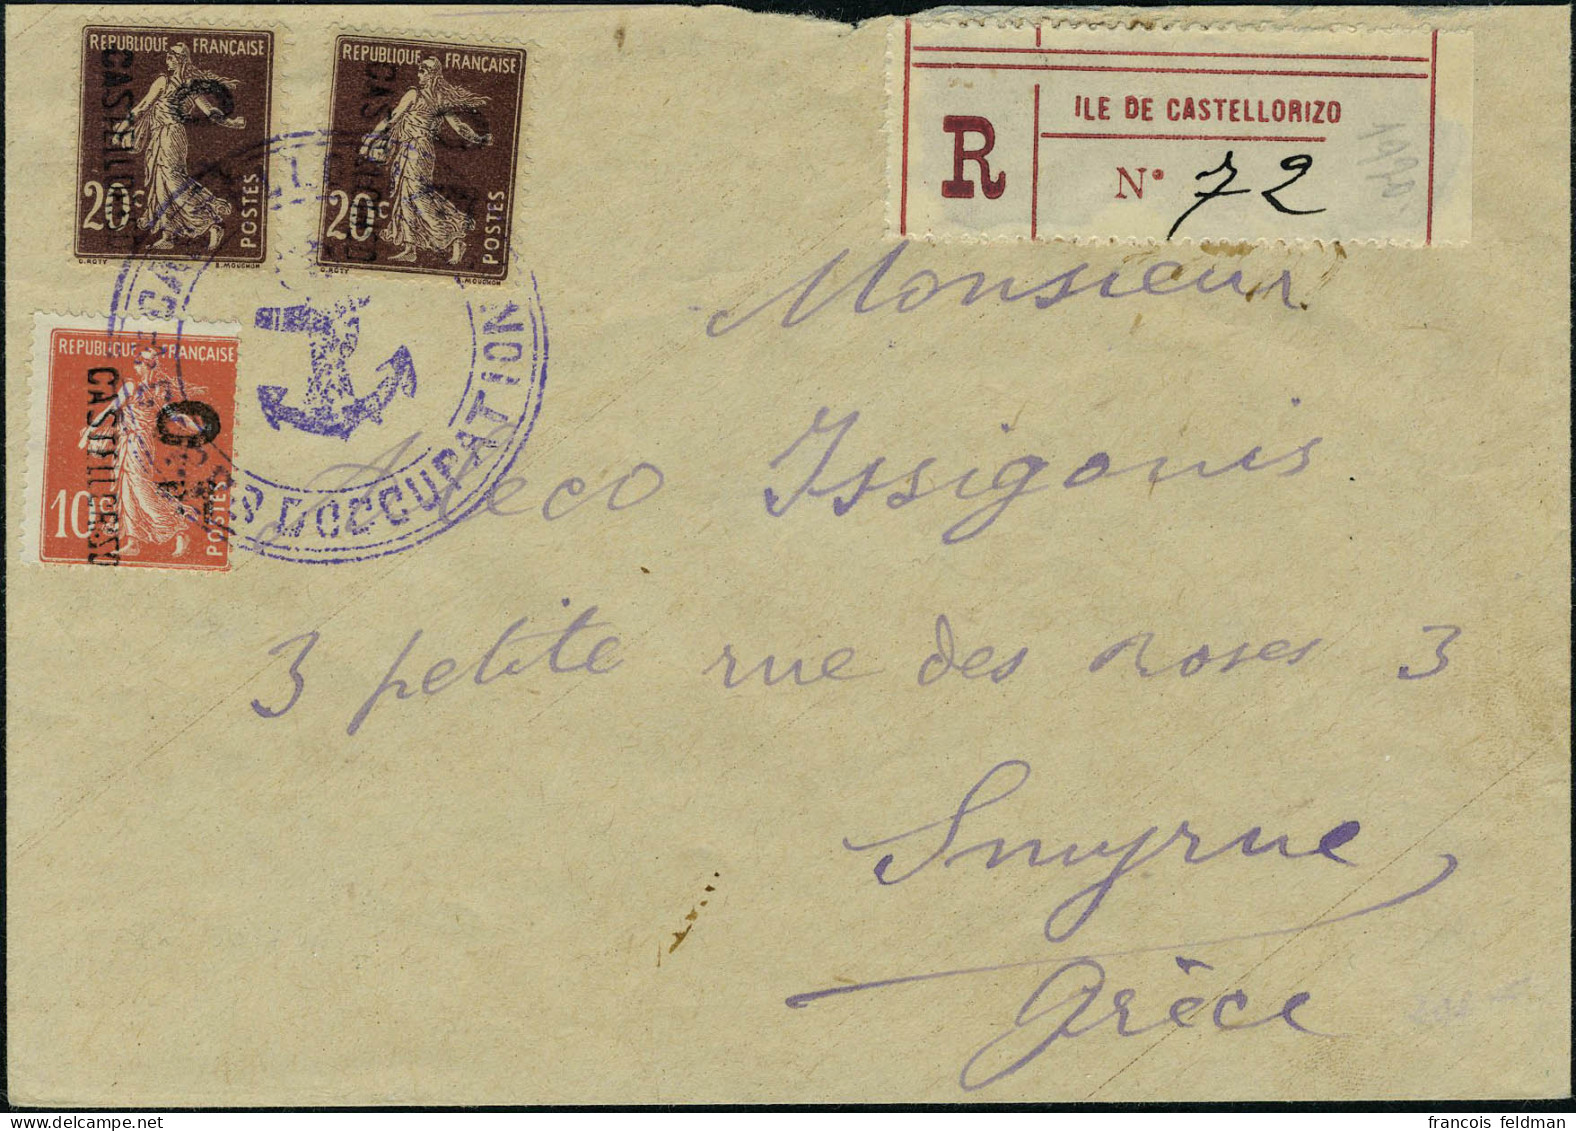 REPUBLIQUE FRANÇAISE
CASTELLORIZO
20c
POSTES
O. ROTY
E. MOUCHON
REPUBLIQUE FRANÇAISE
20c
POSTES
O. ROTY
E. MOUCHON
REPUBLIQUE FRANÇAISE
CASTELLORIZO
10c
POSTES
D'OCCUPATION
ILE DE CASTELLORIZO
R
N° 72
1920
Monsieur
Aleco Issigonis
3 petite rue des roses 3
Smyrne
Grèce
francois feldman